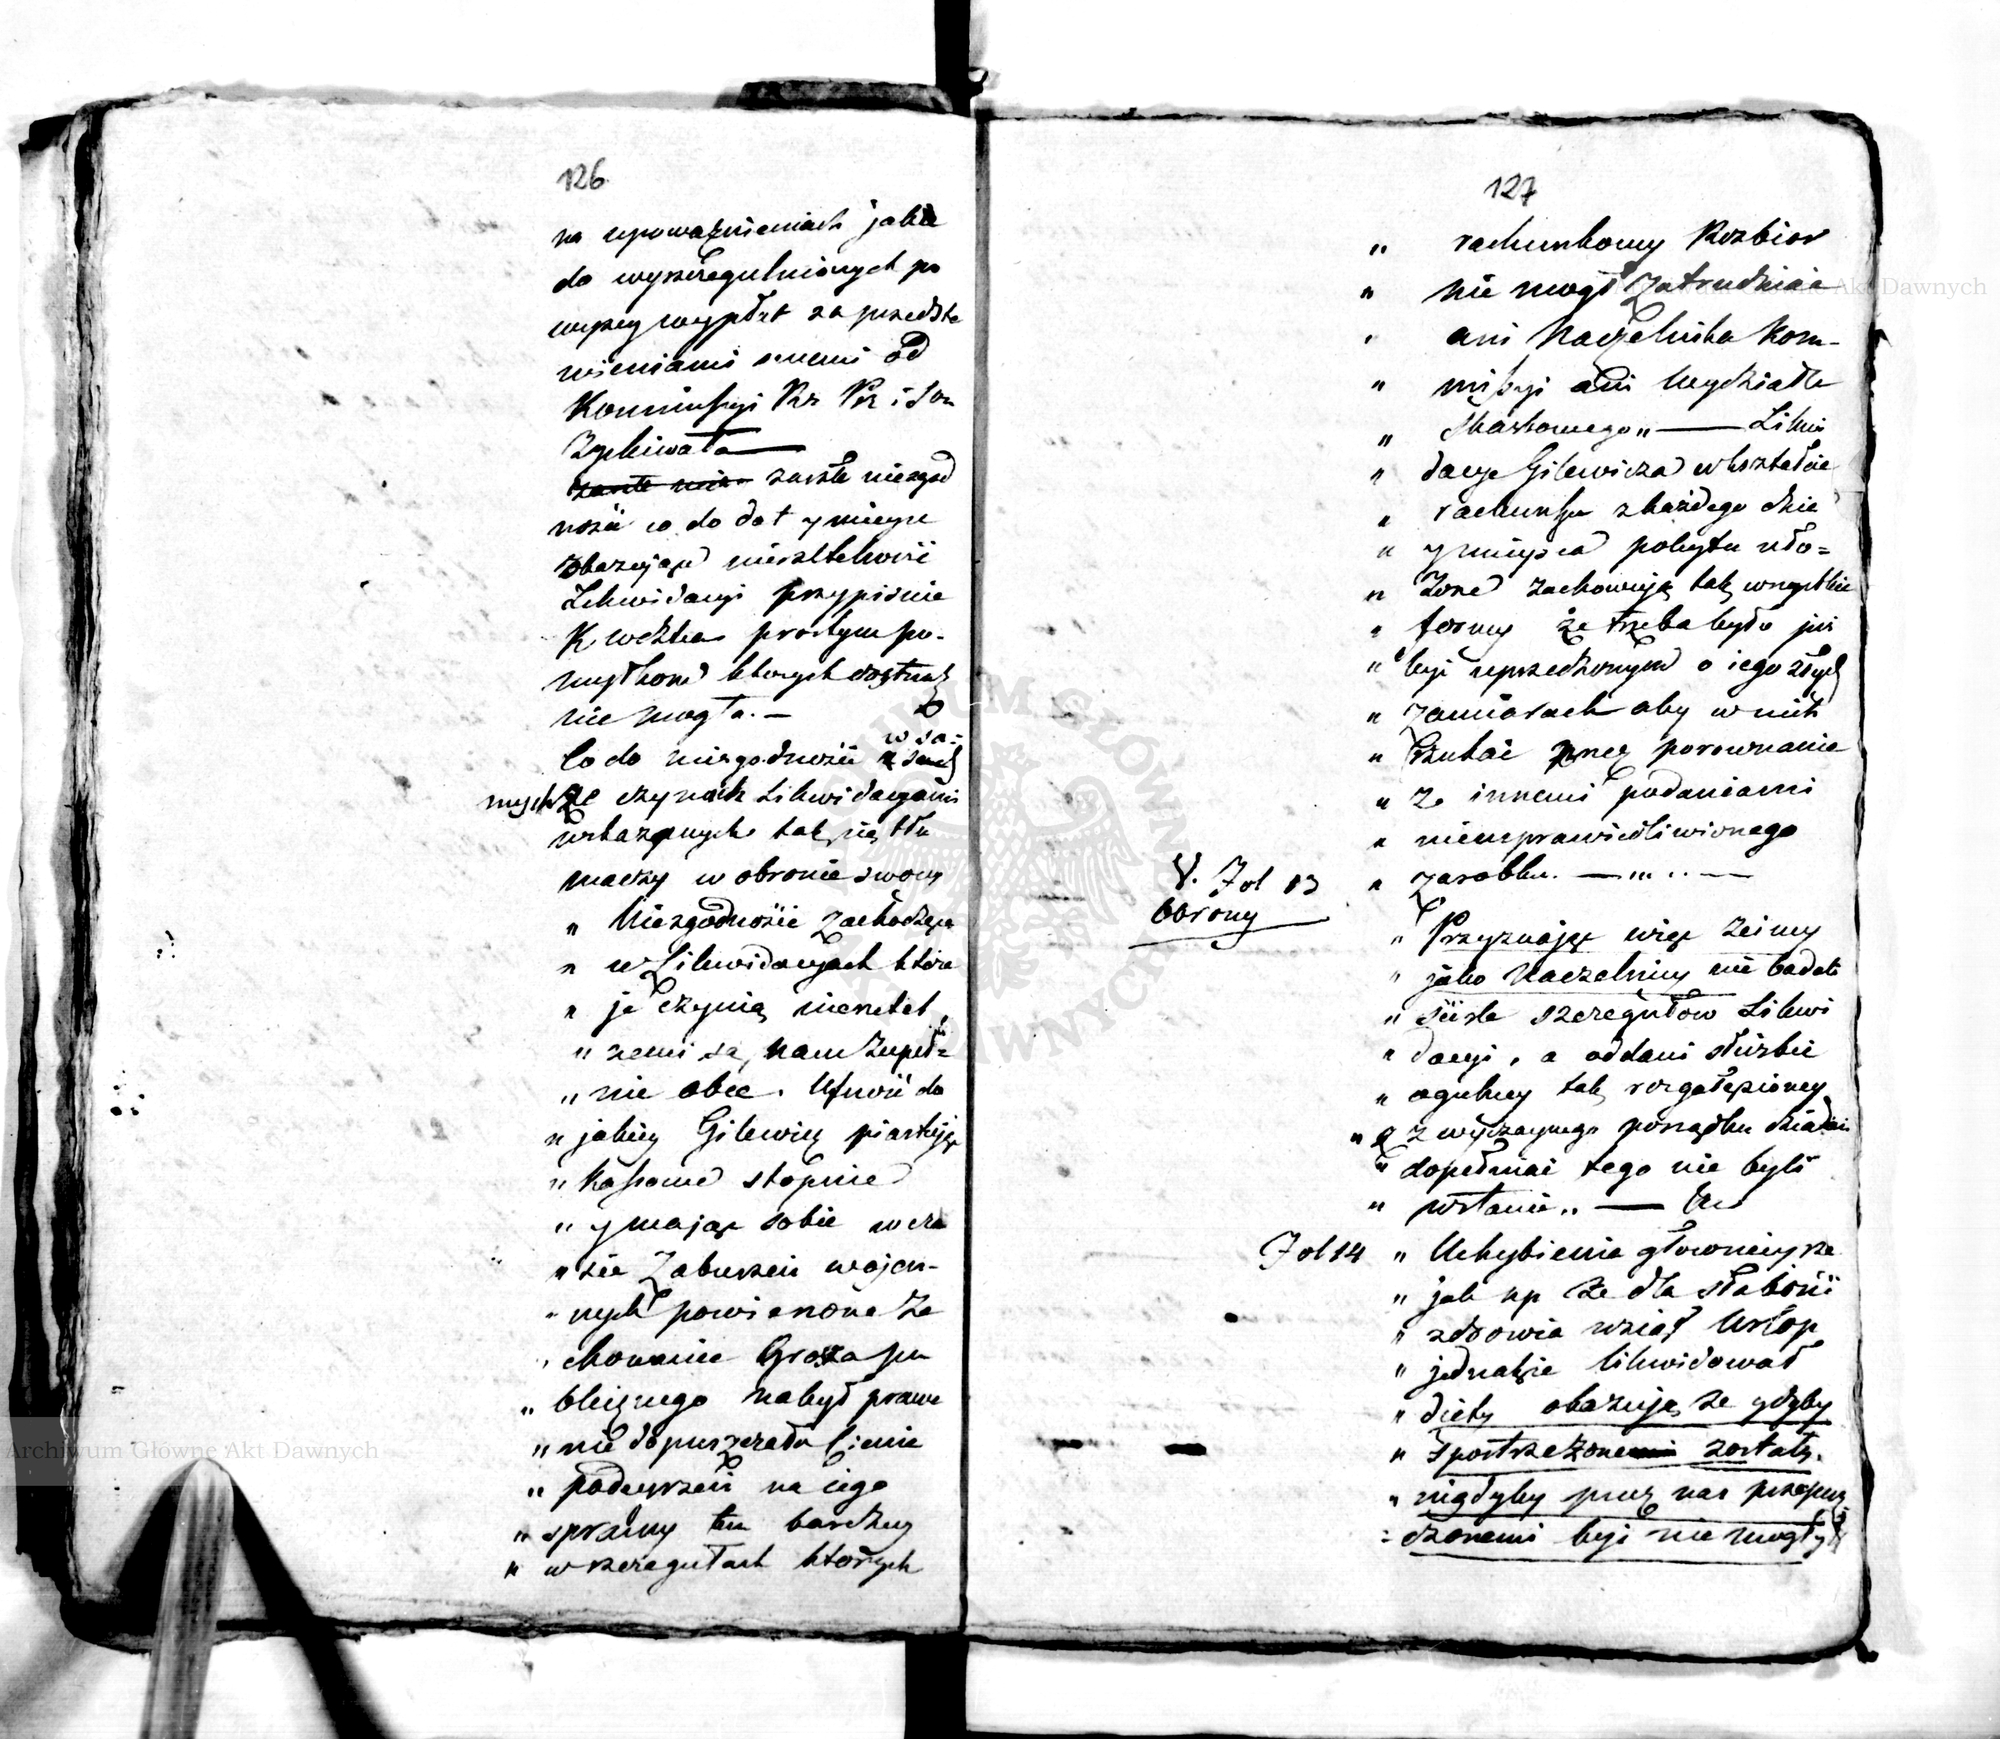 126
na upoważnieniach jakie
do wyszczegulnionych po
wyzey wypłat za przedsta
wieniami swemi od
Kommissyi Rz Pr i Sw
Zyskiwała
zaszłe niezgod
ności co do dat y mieysc
okazujące nierzetelność
Likwidacyi przypisuie
prostym po-
myłkom ktorych dostrzedz
nie mogła. —
Co do niezgodności w sa-
mych że czynach Likwidacyami
wskazanych tak się tłu
maczy w obronie swoiey
„ Niezgodności zachodzące
„ w Likwidacyach które
„ je czynią nierzetel
„ nemi są, nam zupeł=
„ nie obce. Ufność do
„ jakiey Gilewicz piastując
„ Kassowe stopnie
„ y mając sobie w cza
„ sie Zaburzeń wojen-
„ nych powierzone Za
„ chowanie Grosza pu
„ blicznego nabył prawa
„ nie dopuszczała cienie
„ podeyrzeń na iego
„ sprawy tem bardziey
„ w szczegułach ktorych
127
„ rachunkowy Rozbior
„ nie mogł Zatrudniać
„ ani Naczelnika Kom-
„ missyi ani Wydziału
„ Skarbowego „ — Likwi
„ dacye Gilewicza w kształcie
„ rachunku z każdego dnia
„ y mieysca pobytu uło=
„ żone zachowują tak wszystkie
„ formy że trzeba było już
„ być uprzedzonym o iego złych
„ zamiarach aby w nich
„ szukać przez porownanie
„ ze innemi podaniami
„ nieusprawiedliwionego
„ zarobku. — „ —
V. Fol 13
Obrony
„ Przyznając więc żeśmy
„ jako Naczelnicy nie badali
„ ściśle szczegułow Likwi
„ dacyi, a oddani służbie
„ ogulney tak rozgałęzioney
„ z zwyczaynego porządku działań
„ dopełniać tego nie byli
„ wstanie „ —
Fol 14 „ Uchybienia głownieysze
„ jak np że dla słabości
„ zdrowia wziął Urlop
„ jednakże likwidował
„ diety okazują że gdyby
„ spostrzeżone zostały.
„ nigdyby przez nas przepusz
„ czonemi być nie mogły
Archiwum Główne Akt Dawnych